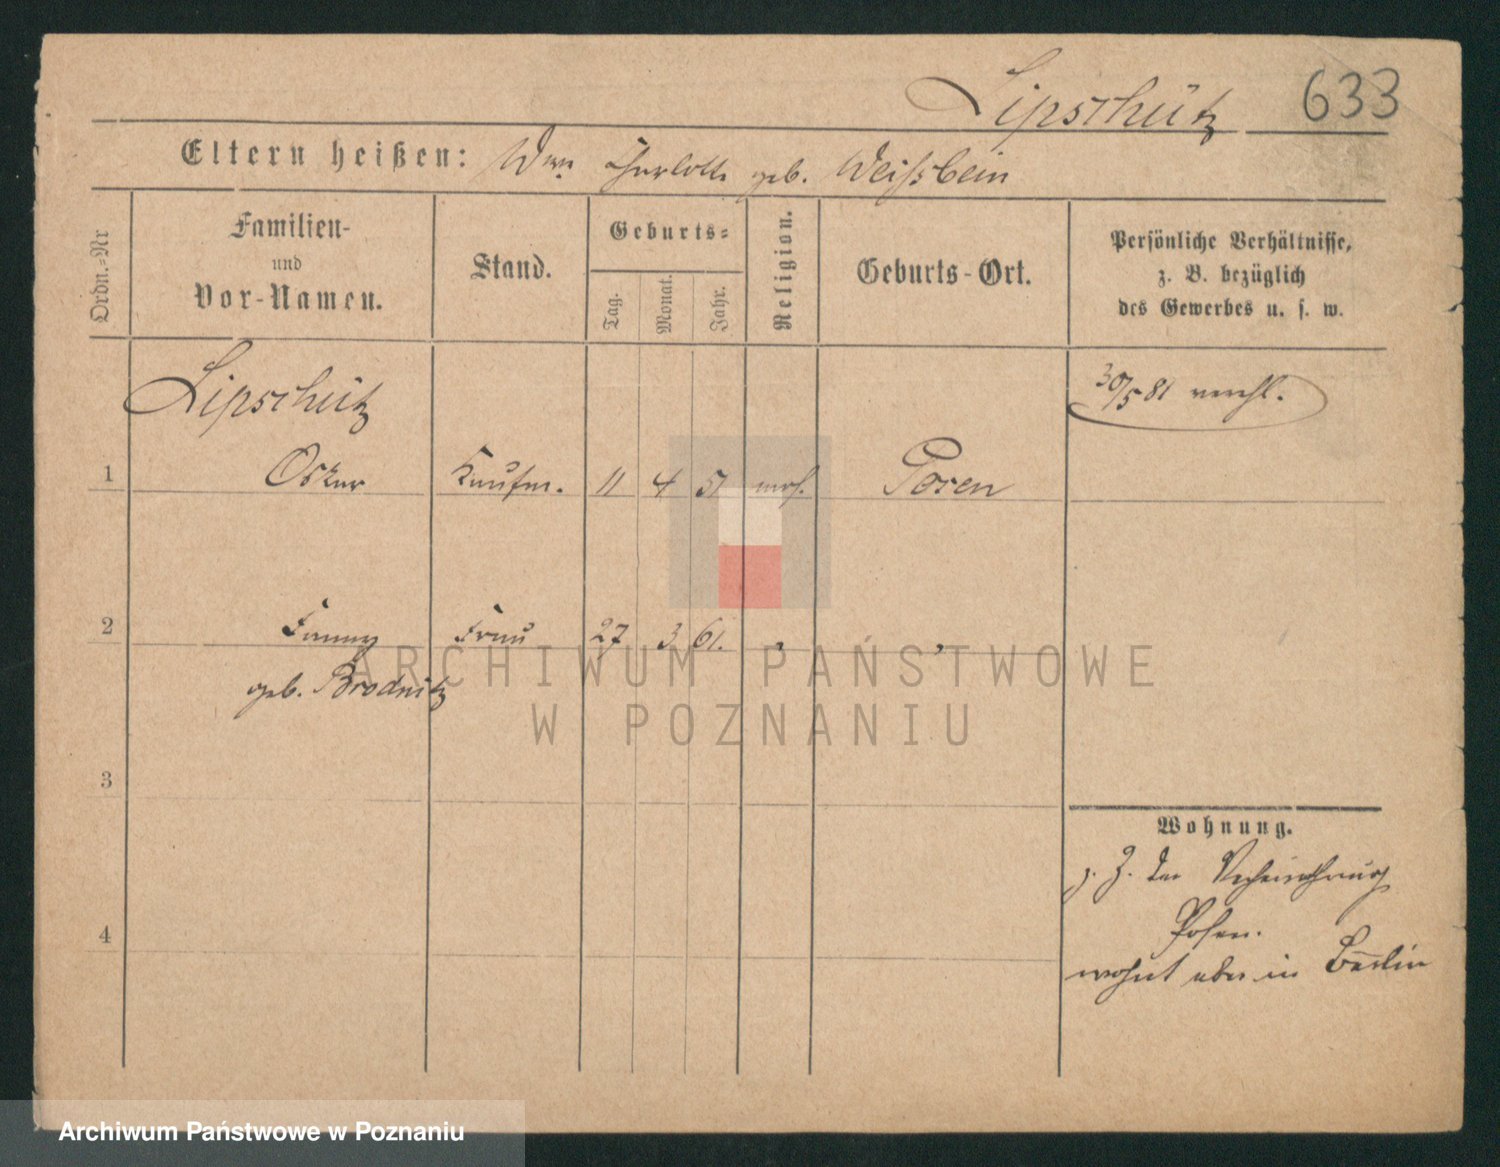 Lipschütz 633
Eltern heißen: Wwe. Charlotte geb. Weißbein
Ordn.-Nr
Familien-
und
Vor-Namen.
Stand.
Geburts-
Tag.
Monat.
Jahr.
Religion.
Geburts-Ort.
Persönliche Verhältnisse,
z. B. bezüglich
des Gewerbes u. s. w.
Lipschütz
30/5 81 verehl.
1 Oskar Kaufm. 11 4 51 mos. Posen
2 Fanny Frau 27 3 61. " "
geb. Brodnitz
3
4
Wohnung.
z. Z. der
Posen.
wohnt aber in Berlin
ARCHIWUM PAŃSTWOWE
W POZNANIU
Archiwum Państwowe w Poznaniu